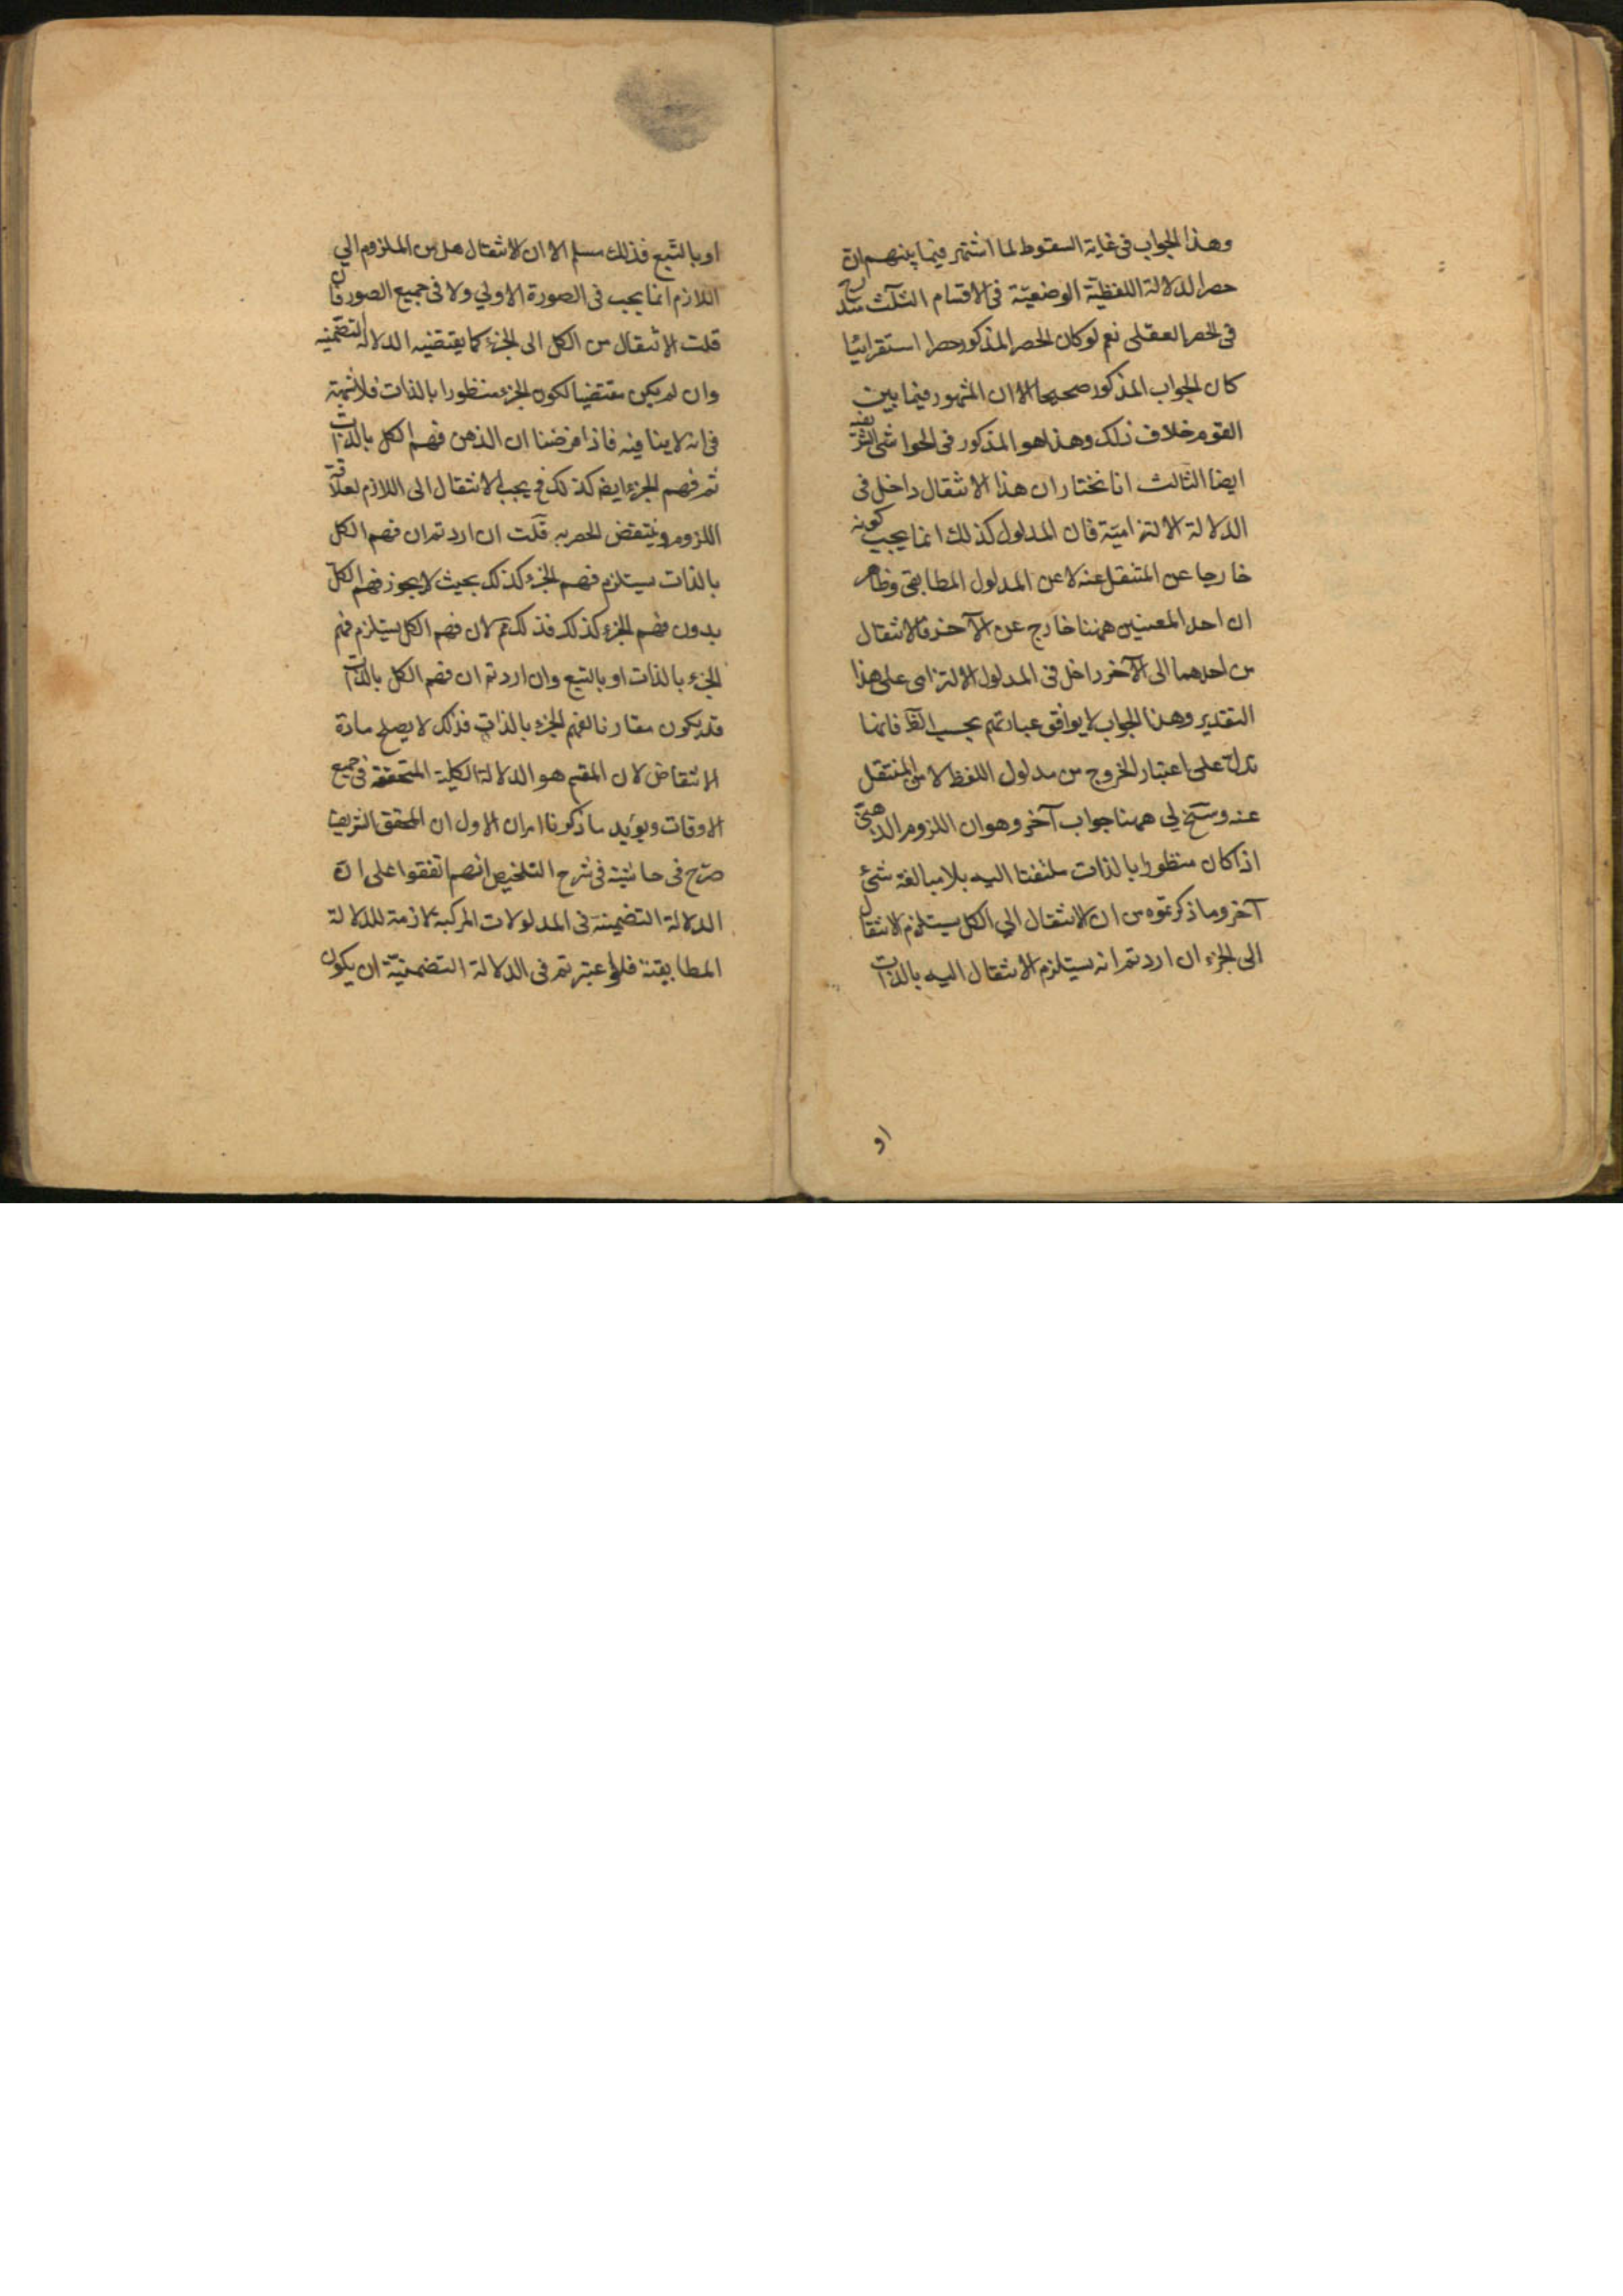 وهذا الجواب فى غاية السقوط لما اشتهر فيما بينهم ان
حصر الدلالة اللفظية الوضعيّة فى الاقسام الثلث مندرج
فى الحصر العقلى نعم لو كان الحصر المذكور حصرا استقرائيا
كان الجواب المذكور صحيحا الا ان المشهور فيما بين
القوم خلاف ذلك وهذا هو المذكور فى الحواشى الشريفية
ايضا الثالث انا نختار ان هذا الانتقال داخل فى
الدلالة الالتزاميّة فان المدلول كذلك انما يجب كونه
خارجا عن المنتقل عنه لا عن المدلول المطابقى وظاهر
ان احد المعنيين ههنا خارج عن الآخر فالانتقال
من احدهما الى الآخر داخل فى المدلول الالتزامى على هذا
التقدير وهذا الجواب لا يوافق عبارتهم بحسب الظ فانها
تدل على اعتبار الخروج من مدلول اللفظ لا من المنتقل
عنه وسنح لى ههنا جواب آخر وهو ان اللزوم الذهنى
اذا كان منظورا بالذات ملتفتا اليه بلا مبالغة شئ
آخر وما ذكرتموه من ان الانتقال الى الكل يستلزم الانتقال
الى الجزء ان اردتم انه يستلزم الانتقال اليه بالذات
او
او بالتبع فذلك مسلم الا ان الانتقال من الملزوم الى
اللازم انما يجب فى الصورة الاولى ولا فى جميع الصور فان
قلت الانتقال من الكل الى الجزء كما يقتضيه الدلالة التضمنية
وان لم يكن مقتضيا لكون الجزء منظورا بالذات فلا شبهة
فى انه لا ينافيه فاذا فرضنا ان الذهن فهم الكل بالذات
ثم فهم الجزء ايض كذلك فح يجب الانتقال الى اللازم لعلاقة
اللزوم وينتقض الحصر به قلت ان اردتم ان فهم الكل
بالذات يستلزم فهم الجزء كذلك بحيث لا يجوز فهم الكل
بدون فهم الجزء كذلك فذلك مم لان فهم الكل يستلزم فهم
الجزء بالذات او بالتبع وان اردتم ان فهم الكل بالذات
قد يكون مقارنا لفهم الجزء بالذات فذلك لا يصلح مادة
الانتقاض لان المقسم هو الدلالة الكلية المتحققة فى جميع
الاوقات ويؤيد ما ذكرنا امران الاول ان المحقق الشريف
صرّح فى حاشية فى شرح التلخيص انهم اتفقوا على ان
الدلالة التضمنية فى المدلولات المركبة لازمة للدلالة
المطابقية فلو اعتبرتم فى الدلالة التضمنيّة ان يكون